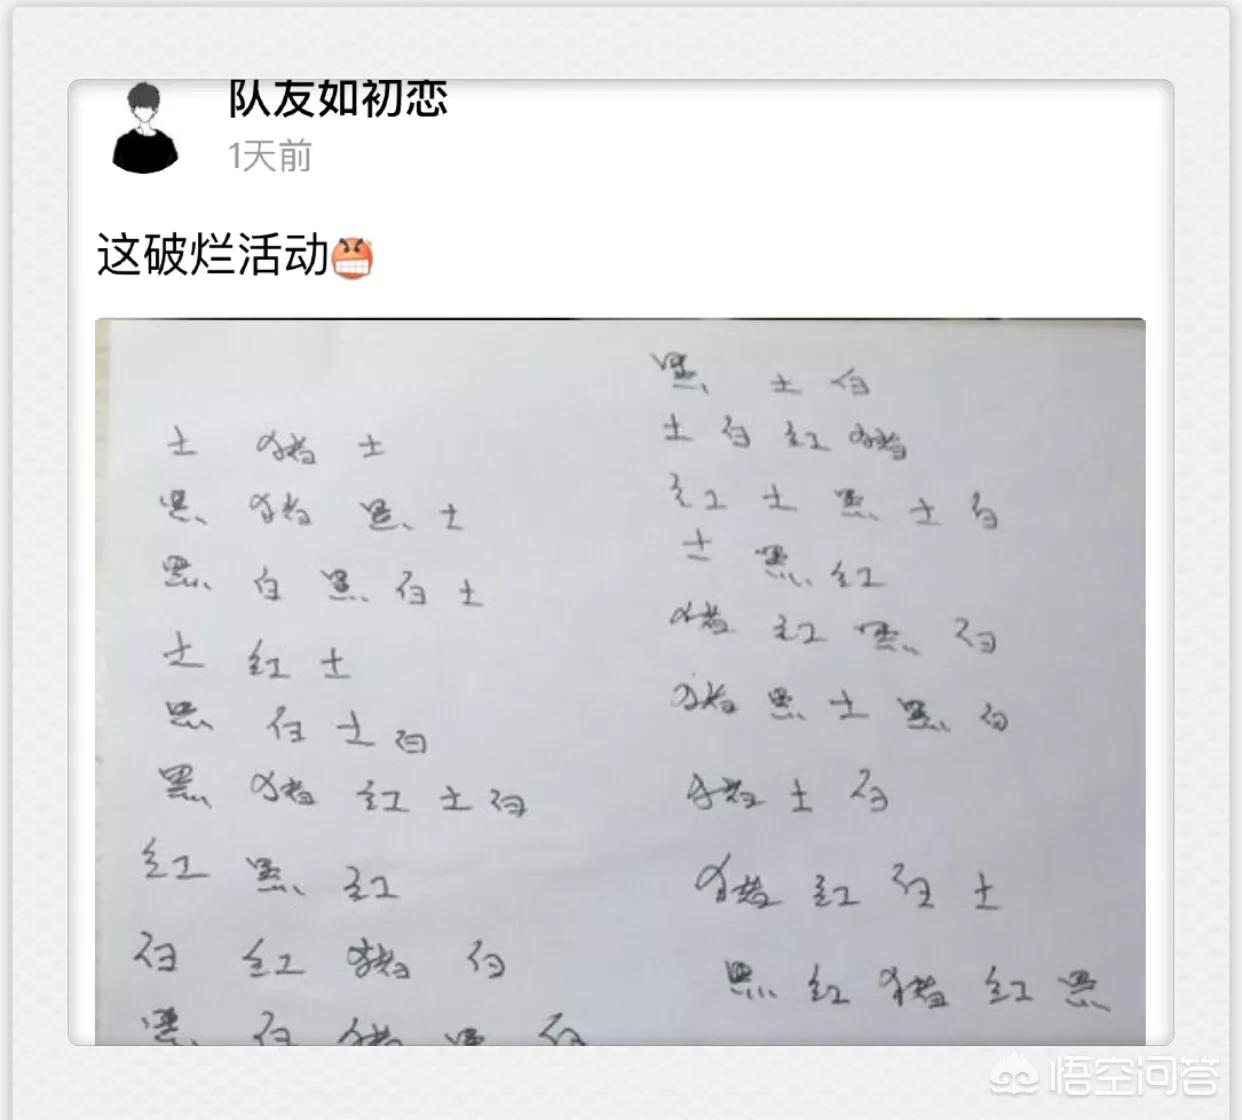 队友如初恋
1天前
这破烂活动
土 猪 土
黑 猪 黑 土
黑 白 黑 白 土
土 红 土
黑 白 土 白
黑 猪 红 土 白
红 黑 红
白 红 猪 白
黑 白 猪 黑 白
黑 土 白
土 白 红 猪
红 土 黑 土 白
土 黑 红
猪 红 黑 白
猪 黑 土 黑 白
猪 土 白
猪 红 白 土
黑 红 猪 红 黑
悟空问答